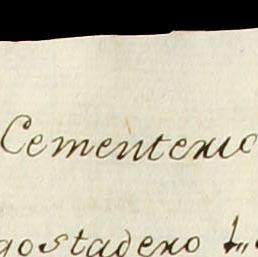 Cementerio
gostadero